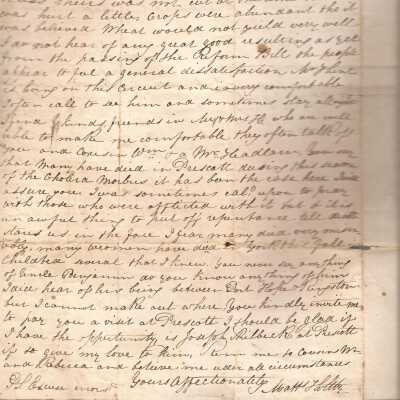 was not cut at
was hurt a little Crops were abundant tho it
was believed Wheat would not yield very well
I do not hear of any great good resulting as yet
from the passing of the Reform Bill the people
appear to feel a general dissatisfaction Mr
is living on this Circuit and is very comfortable
I often call to see him and sometimes stay all night
I find kind friends in Mr & Mrs H who are well
able to make me comfortable they often talk of
you and Cousin Wm & Mr Headlam. You say
that Many have died in Prescott during this season
of the Cholera Morbus it has been the case here I
assure you. I was sometimes called upon to pray
with those who were afflicted with it but o it is
an awful thing to put off repentance till death
stares us in the face I fear many died very
many women have died in York this Fall
Childbed several that I knew. You never say anything
of Uncle Benjamin do you know anything of him
I did hear of his being between Port Hope & Kingston
but I cannot make out where You kindly invite me
to pay you a visit at Prescott I should be glad if
I have the oppertunity is Joseph Philbeck at Prescott
if so give my love to him, & to Cousins Wm
and Rebecca and believe me under all circumstances
Yours Affectionately
Matt